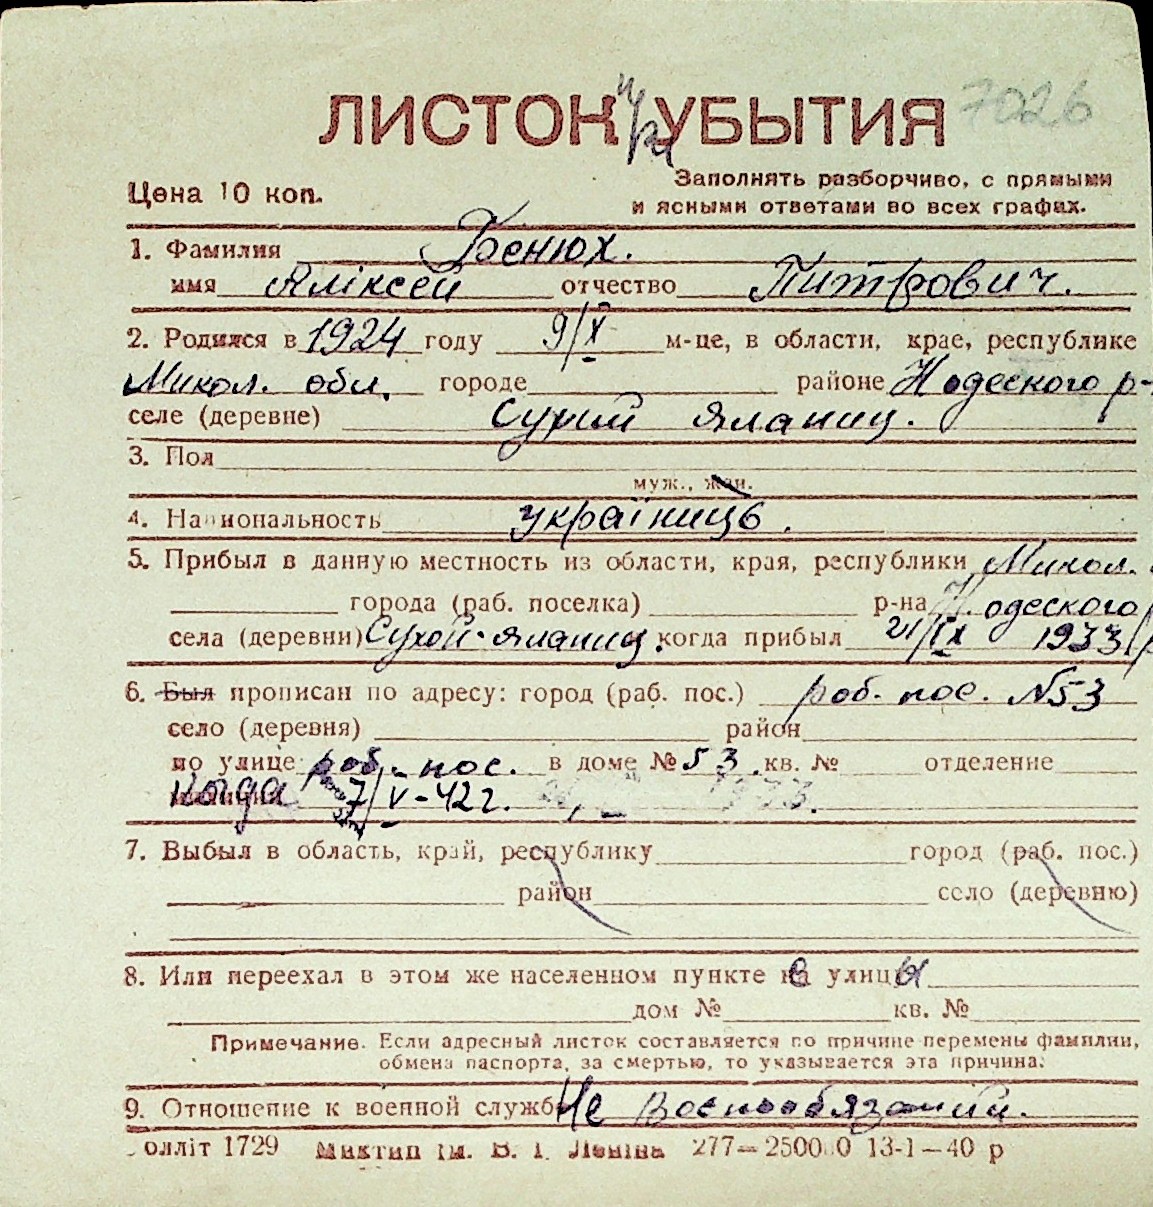 ЛИСТОК УБЫТИЯ 7026
Цена 10 коп.
Заполнять разборчиво, с прямыми
и ясными ответами во всех графах.
1. Фамилия Бенюх.
имя Аліксей отчество Питрович.
2. Родился в 1924 году 9/X м-це, в области, крае, республике
Микол. обл. городе районе Н одеского р-
селе (деревне) Сухий Яланиц.
3. Пол
муж., жен.
4. Национальность україниць.
5. Прибыл в данную местность из области, края, республики Микол.
города (раб. поселка) р-на Н. одеского
села (деревни) Сухой-Яланиц. когда прибыл 21/IX 1933
6. Был прописан по адресу: город (раб. пос.) роб. пос. №53
село (деревня) район
по улице роб. пос. в доме № 53. кв. № отделение
когда 7/V-42 г. 1933.
7. Выбыл в область, край, республику город (раб. пос.)
район село (деревню)
8. Или переехал в этом же населенном пункте с улицы
дом № кв. №
Примечание. Если адресный листок составляется по причине перемены фамилии,
обмена паспорта, за смертью, то указывается эта причина.
9. Отношение к военной службе Не воєнообязаний.
олліт 1729 Миктип ім. В. І. Леніна 277—250000 13-1—40 р